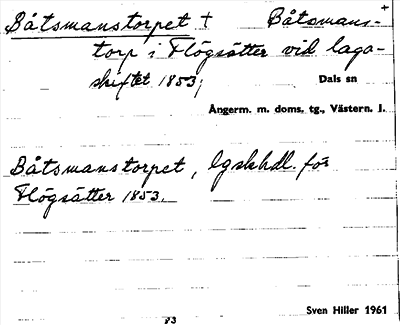 Båtsmanstorpet † Båtsmans- +
torp i Högsätter vid laga-
skiftet 1853;
Dals sn
Ångerm. m. doms. tg., Västern. l.
Båtsmanstorpet, lgskhdl. för
Högsätter 1853.
Sven Hiller 1961
83